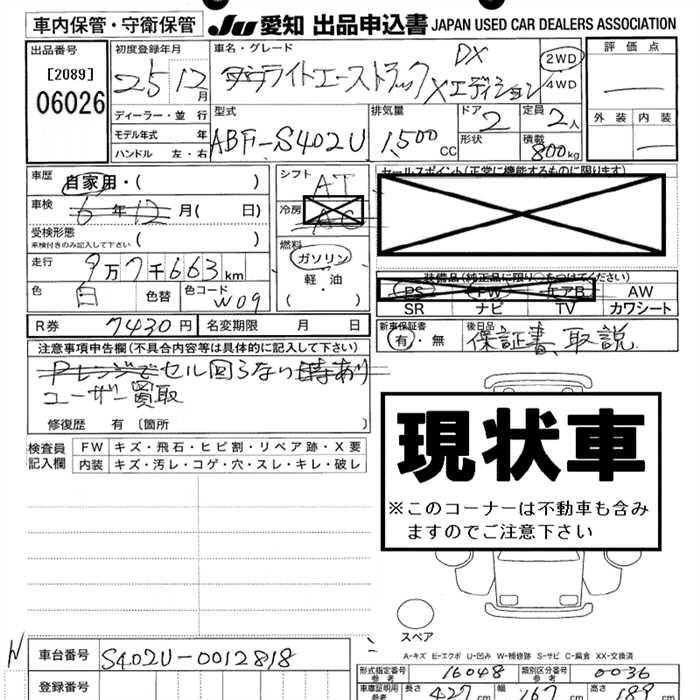 車内保管・守衛保管 JU 愛知 出品申込書 JAPAN USED CAR DEALERS ASSOCIATION
出品番号 初度登録年月 車名・グレード 評価点
[2089] 25 12月 ライトエーストラック DX Xエディション 2WD 4WD
06026
ディーラー・並行 型式 排気量 ドア 定員 外装 内装
モデル年式 年 ABF-S402U 1,500 CC 2 2人
ハンドル 左・右 形状 積載 800kg
車歴 自家用・( ) シフト AT セールスポイント(正常に機能するものに限ります)
車検 6年12月( 日) 冷房 AC
受検形態
車検付きのみ記入して下さい ( ) 燃料
走行 9万7千663km ガソリン
軽・油 装備品(純正品に限り○をつけてください)
色 白 色替 色コード W09 ・( ) PS PW エアB AW
SR ナビ TV カワシート
R券 7430円 名変期限 月 日 新車保証書 後日品
有・無 保証書、取説
注意事項申告欄(不具合内容等は具体的に記入して下さい)
Pレンジでセル回らない時あり
ユーザー買取
修復歴 有〔箇所 〕
現状車
※このコーナーは不動車も含み
ますのでご注意下さい
検査員 FW キズ・飛石・ヒビ割・リペア跡・X要
記入欄 内装 キズ・汚レ・コゲ・穴・スレ・キレ・破レ
スペア
A-キズ E-エクボ U-凹み W-補修跡 S-サビ C-腐食 XX-交換済
N 車台番号 S402U-0012818 型式指定番号 参考 16048 類別区分番号 参考 0036
登録番号 車庫証明用 参考 長さ 427cm 幅 167cm 高さ 188cm